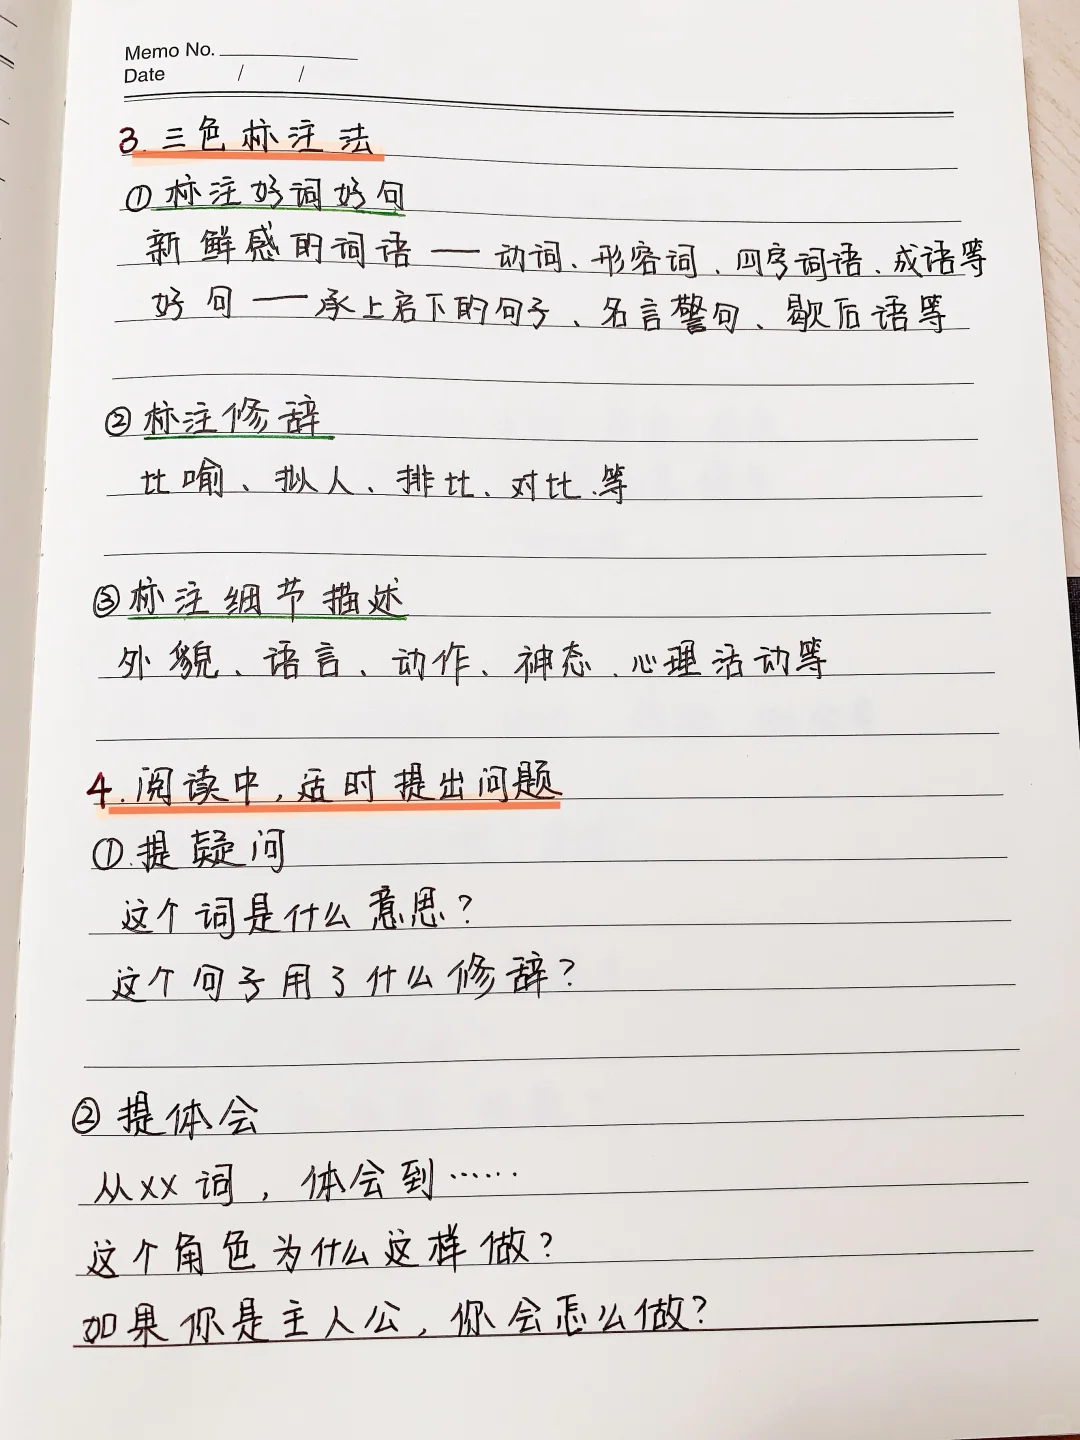 Memo No.
Date / /
3. 三色标注法
①标注好词好句
新鲜感的词语——动词、形容词、四字词语、成语等
好句——承上启下的句子、名言警句、歇后语等
②标注修辞
比喻、拟人、排比、对比、等
③标注细节描述
外貌、语言、动作、神态、心理活动等
4.阅读中,适时提出问题
①.提疑问
这个词是什么意思?
这个句子用了什么修辞?
②提体会
从xx词,体会到……
这个角色为什么这样做?
如果你是主人公,你会怎么做?